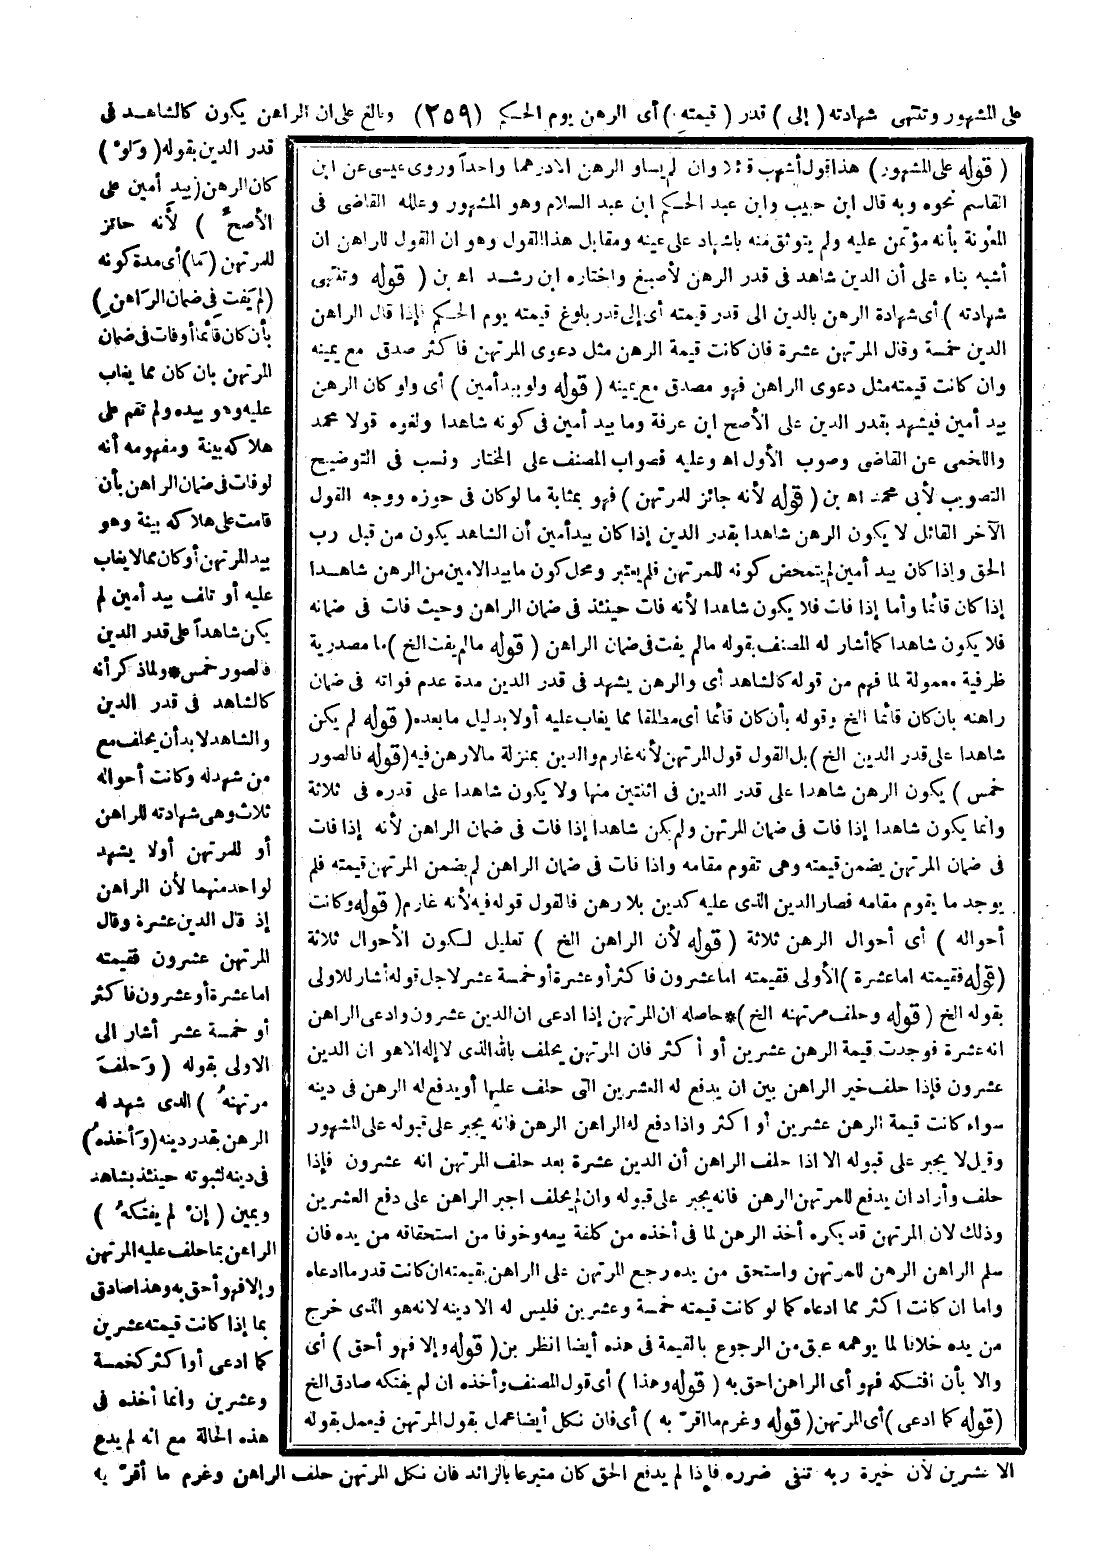 على المشهور وتنتهى شهادته ( إلى ) قدر ( قيمته ) أى الرهن يوم الحكم (٢٥٩) وبالغ على ان الراهن يكون كالشاهد فى
قدر الدين بقوله ( ولو )
كان الرهن ( بيد أمين على
الأصح ) لأنه حائز
للمرتهن (ما) أى مدة كونه
(لم يفت فى ضمان الراهن)
بأن كان قائما أوفات فى ضمان
المرتهن بان كان مما يغاب
عليه وهو بيده ولم تقم على
هلاكه بينة ومفهومه أنه
لوفات فى ضمان الراهن بأن
قامت على هلاكه بينة وهو
بيد المرتهن أو كان مما لا يغاب
عليه أو تلف بيد أمين لم
يكن شاهداً على قدر الدين
فالصور خمس * ولما ذكر أنه
كالشاهد فى قدر الدين
والشاهد لابد أن يحلف مع
من شهد له وكانت أحواله
ثلاث وهى شهادته للراهن
أو للمرتهن أولا يشهد
لواحد منهما لأن الراهن
إذ قال الدين عشرة وقال
المرتهن عشرون فقيمته
اما عشرة أو عشرون فاكثر
أو خمسة عشر أشار الى
الاولى بقوله ( وحلف
مرتهنه ) الذى شهد له
الرهن بقدر دينه (وأخذه)
فى دينه لثبوته حينئذ بشاهد
ويمين ( إن لم يفتكه )
الراهن بما حلف عليه المرتهن
وإلا فهو أحق به وهذا صادق
بما إذا كانت قيمته عشرين
كما ادعى أو اكثر كخمسة
وعشرين وانما أخذه فى
هذه الحالة مع انه لم يدع
الا عشرين لأن خيرة ربه تنفى ضرره فاذا لم يدفع الحق كان متبرعا بالزائد فان نكل المرتهن حلف الراهن وغرم ما أقر به
( قوله على المشهور ) هذا قول أشهب قائلا وان لم يساو الرهن الا درهما واحداً وروى عيسى عن ابن
القاسم نحوه وبه قال ابن حبيب وابن عبد الحكم ابن عبد السلام وهو المشهور وعلله القاضى فى
المعونة بأنه مؤتمن عليه ولم يتوثق منه باشهاد على عينه ومقابل هذا القول وهو ان القول للراهن ان
أشبه بناء على أن الدين شاهد فى قدر الرهن لأصبغ واختاره ابن رشد اه بن ( قوله وتنتهى
شهادته ) أى شهادة الرهن بالدين الى قدر قيمته أى إلى قدر بلوغ قيمته يوم الحكم فإذا قال الراهن
الدين خمسة وقال المرتهن عشرة فان كانت قيمة الرهن مثل دعوى المرتهن فاكثر صدق مع يمينه
وان كانت قيمته مثل دعوى الراهن فهو مصدق مع يمينه ( قوله ولو بيد أمين ) أى ولو كان الرهن
بيد أمين فيشهد بقدر الدين على الأصح ابن عرفة وما بيد أمين فى كونه شاهدا ولغوه قولا محمد
واللخمى عن القاضى وصوب الأول اه وعليه فصواب المصنف على المختار ونسب فى التوضيح
التصويب لأبى محمد اه بن ( قوله لأنه جائز للمرتهن ) فهو بمثابة ما لو كان فى حوزه ووجه القول
الآخر القائل لا يكون الرهن شاهدا بقدر الدين إذا كان بيد أمين أن الشاهد يكون من قبل رب
الحق وإذا كان بيد أمين لم يتمحض كونه للمرتهن فلم يعتبر ومحل كون ما بيد الامين من الرهن شاهدا
إذا كان قائما وأما إذا فات فلا يكون شاهدا لأنه فات حينئذ فى ضمان الراهن وحيث فات فى ضمانه
فلا يكون شاهدا كما أشار له المصنف بقوله مالم يفت فى ضمان الراهن ( قوله مالم يفت الخ ) ما مصدرية
ظرفية معمولة لما فهم من قوله كالشاهد أى والرهن يشهد فى قدر الدين مدة عدم فواته فى ضمان
راهنه بان كان قائما الخ وقوله بأن كان قائما أى مطلقا مما يغاب عليه أولا بدليل ما بعده ( قوله لم يكن
شاهدا على قدر الدين الخ ) بل القول قول المرتهن لأنه غارم والدين بمنزلة مالا رهن فيه ( قوله فالصور
خمس ) يكون الرهن شاهدا على قدر الدين فى اثنتين منها ولا يكون شاهدا على قدره فى ثلاثة
وانما يكون شاهدا إذا فات فى ضمان المرتهن ولم يكن شاهدا إذا فات فى ضمان الراهن لأنه إذا فات
فى ضمان المرتهن يضمن قيمته وهى تقوم مقامه واذا فات فى ضمان الراهن لم يضمن المرتهن قيمته فلم
يوجد ما يقوم مقامه فصار الدين الذى عليه كدين بلا رهن فالقول قوله فيه لأنه غارم ( قوله وكانت
أحواله ) أى أحوال الرهن ثلاثة ( قوله لأن الراهن الخ ) تعليل لكون الأحوال ثلاثة
(قوله فقيمته اما عشرة ) الأولى فقيمته اما عشرون فاكثر أو عشرة أو خمسة عشر لاجل قوله أشار للاولى
بقوله الخ ( قوله وحلف مرتهنه الخ ) * حاصله ان المرتهن إذا ادعى ان الدين عشرون وادعى الراهن
انه عشرة فوجدت قيمة الرهن عشرين أو أكثر فان المرتهن يحلف بالله الذى لا إله الا هو ان الدين
عشرون فإذا حلف خير الراهن بين ان يدفع له العشرين التى حلف عليها أو يدفع له الرهن فى دينه
سواء كانت قيمة الرهن عشرين أو اكثر واذا دفع له الراهن الرهن فانه يجبر على قبوله على المشهور
وقيل لا يجبر على قبوله الا اذا حلف الراهن أن الدين عشرة بعد حلف المرتهن انه عشرون فإذا
حلف وأراد ان يدفع للمرتهن الرهن فانه يجبر على قبوله وان لم يحلف اجبر الراهن على دفع العشرين
وذلك لان المرتهن قد يكره أخذ الرهن لما فى أخذه من كلفة بيعه وخوفا من استحقاقه من يده فان
سلم الراهن الرهن للمرتهن واستحق من يده رجع المرتهن على الراهن بقيمته ان كانت قدر ما ادعاه
واما ان كانت اكثر مما ادعاه كما لو كانت قيمته خمسة وعشرين فليس له الا دينه لانه هو الذى خرج
من يده خلافا لما يوهمه عبق من الرجوع بالقيمة فى هذه أيضا انظر بن ( قوله وإلا فهو أحق ) أى
والا بأن افتكه فهو أى الراهن احق به ( قوله وهذا ) أى قول المصنف وأخذه ان لم يفتكه صادق الخ
(قوله كما ادعى ) أى المرتهن ( قوله وغرم ما اقر به ) أى فان نكل أيضا عمل بقول المرتهن فيعمل بقوله